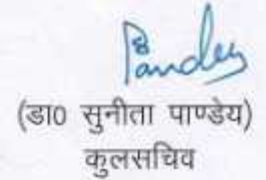 Pandey
(डा0 सुनीता पाण्डेय)
कुलसचिव